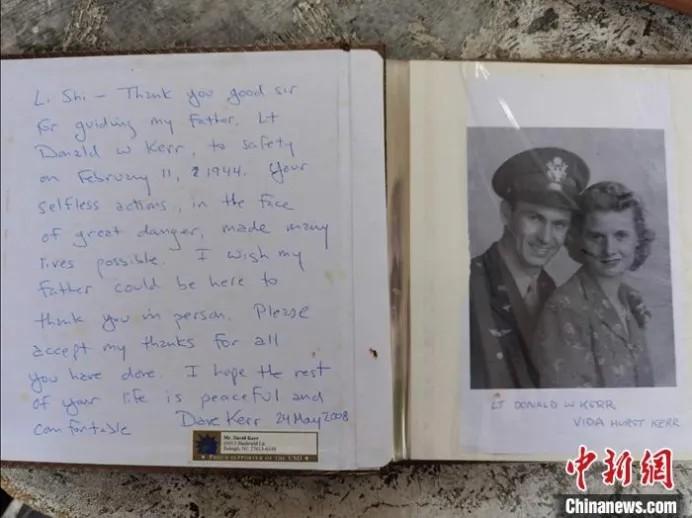 Li Shi - Thank you good sir
for guiding my Father, Lt
Donald W Kerr, to safety
on February 11, 1944. Your
selfless actions, in the face
of great danger, made many
lives possible. I wish my
father could be here to
thank you in person. Please
accept my thanks for all
you have done. I hope the rest
of your life is peaceful and
comfortable Dave Kerr 24 May 2008
Mr. David Kerr
Raleigh, NC
PROUD SUPPORTER OF THE USO
LT DONALD W KERR
VIDA HURST KERR
中新网
Chinanews.com